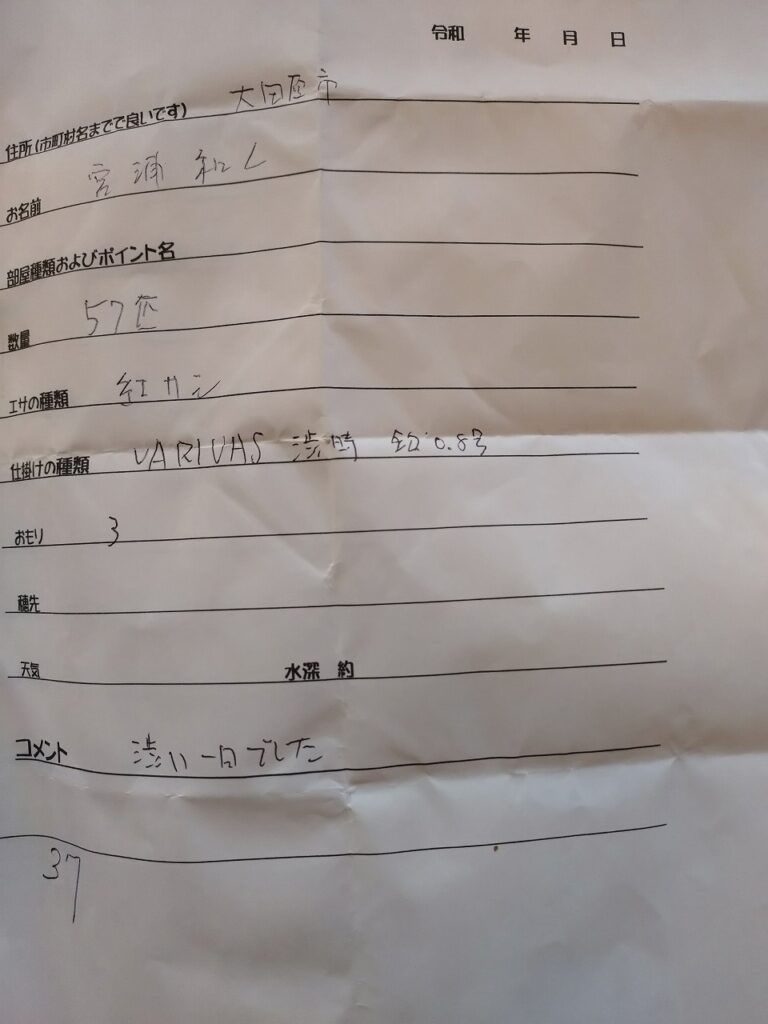 令和 年 月 日
住所(市町村名までで良いです) 大田原市
お名前 宮浦 和人
部屋種類およびポイント名
数量 57匹
エサの種類 紅サシ
仕掛けの種類 VARIVAS 渋時 0.8号
おもり 3
穂先
天気 水深 約
コメント 渋い一日でした
37